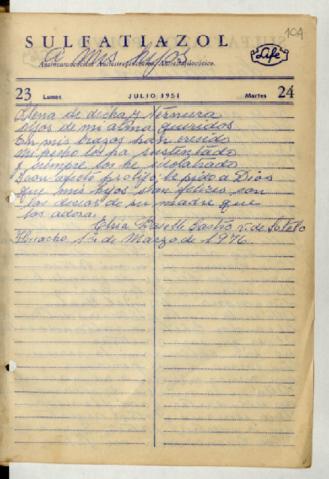 104
SULFATIAZOL
Life
A mis hijos
23 Lunes JULIO, 1951 Martes 24
Llena de dicha y Ternura
hijos de mi alma queridos
En mis brazos han crecido
mi pecho los ha sustentado
y siempre los he idolatrado
con afecto prolijo le pido a Dios
que mis hijos sean felices son
los deseos de su madre que
los adora.
Elvia Castro v. de Sotelo
14 de Marzo de 1976